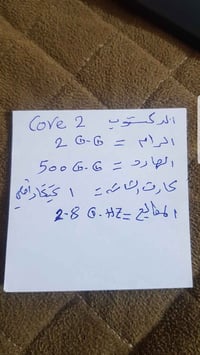 الدسكتوب Core 2
الرام = 2 G.G
الهارد = 500 G.G
كارت الشاشه = 1 كيكا داخلي
المعالج = 2-8 G.HZ